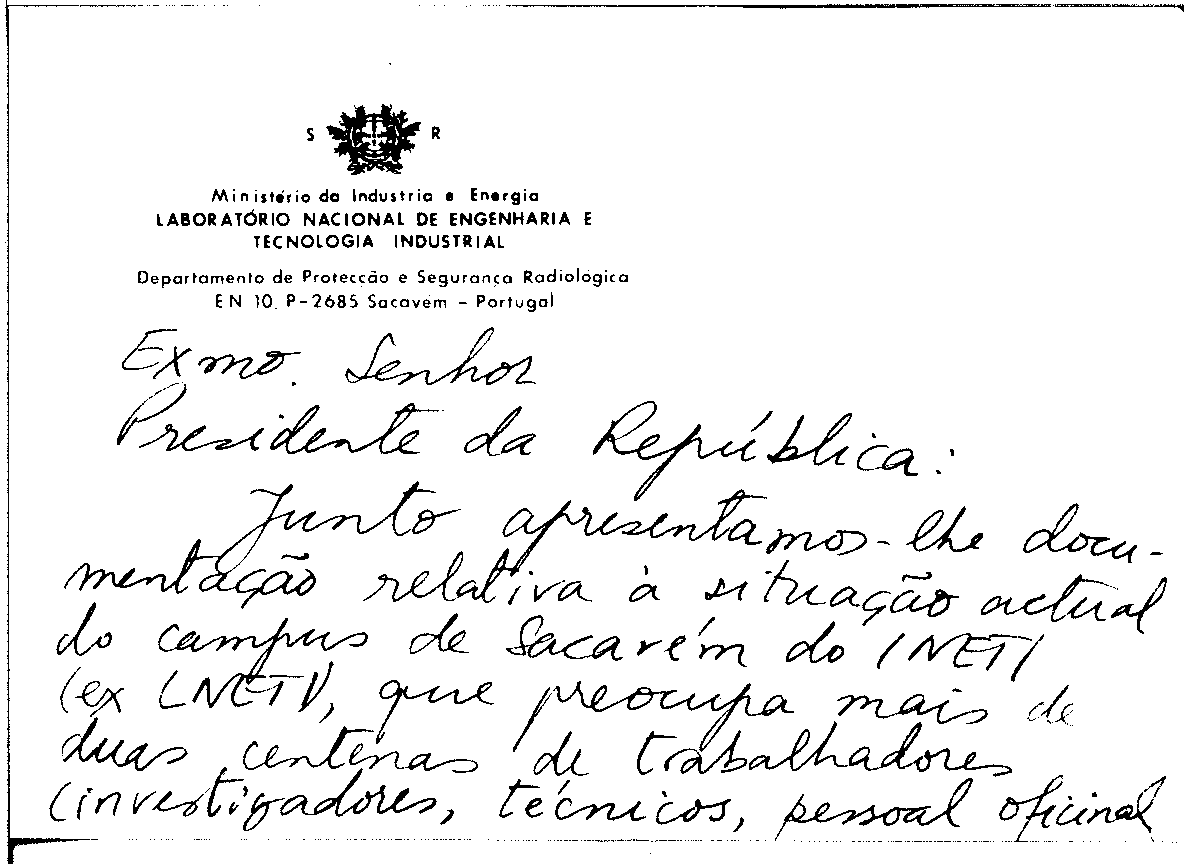 S R
Ministério da Industria e Energia
LABORATÓRIO NACIONAL DE ENGENHARIA E
TECNOLOGIA INDUSTRIAL
Departamento de Protecção e Segurança Radiológica
EN 10, P-2685 Sacavém – Portugal
Exmo. Senhor
Presidente da República:
Junto apresentamos-lhe docu-
mentação relativa à situação actual
do campus de Sacavém do INETI
(ex LNETI), que preocupa mais de
duas centenas de trabalhadores
(investigadores, técnicos, pessoal oficinal